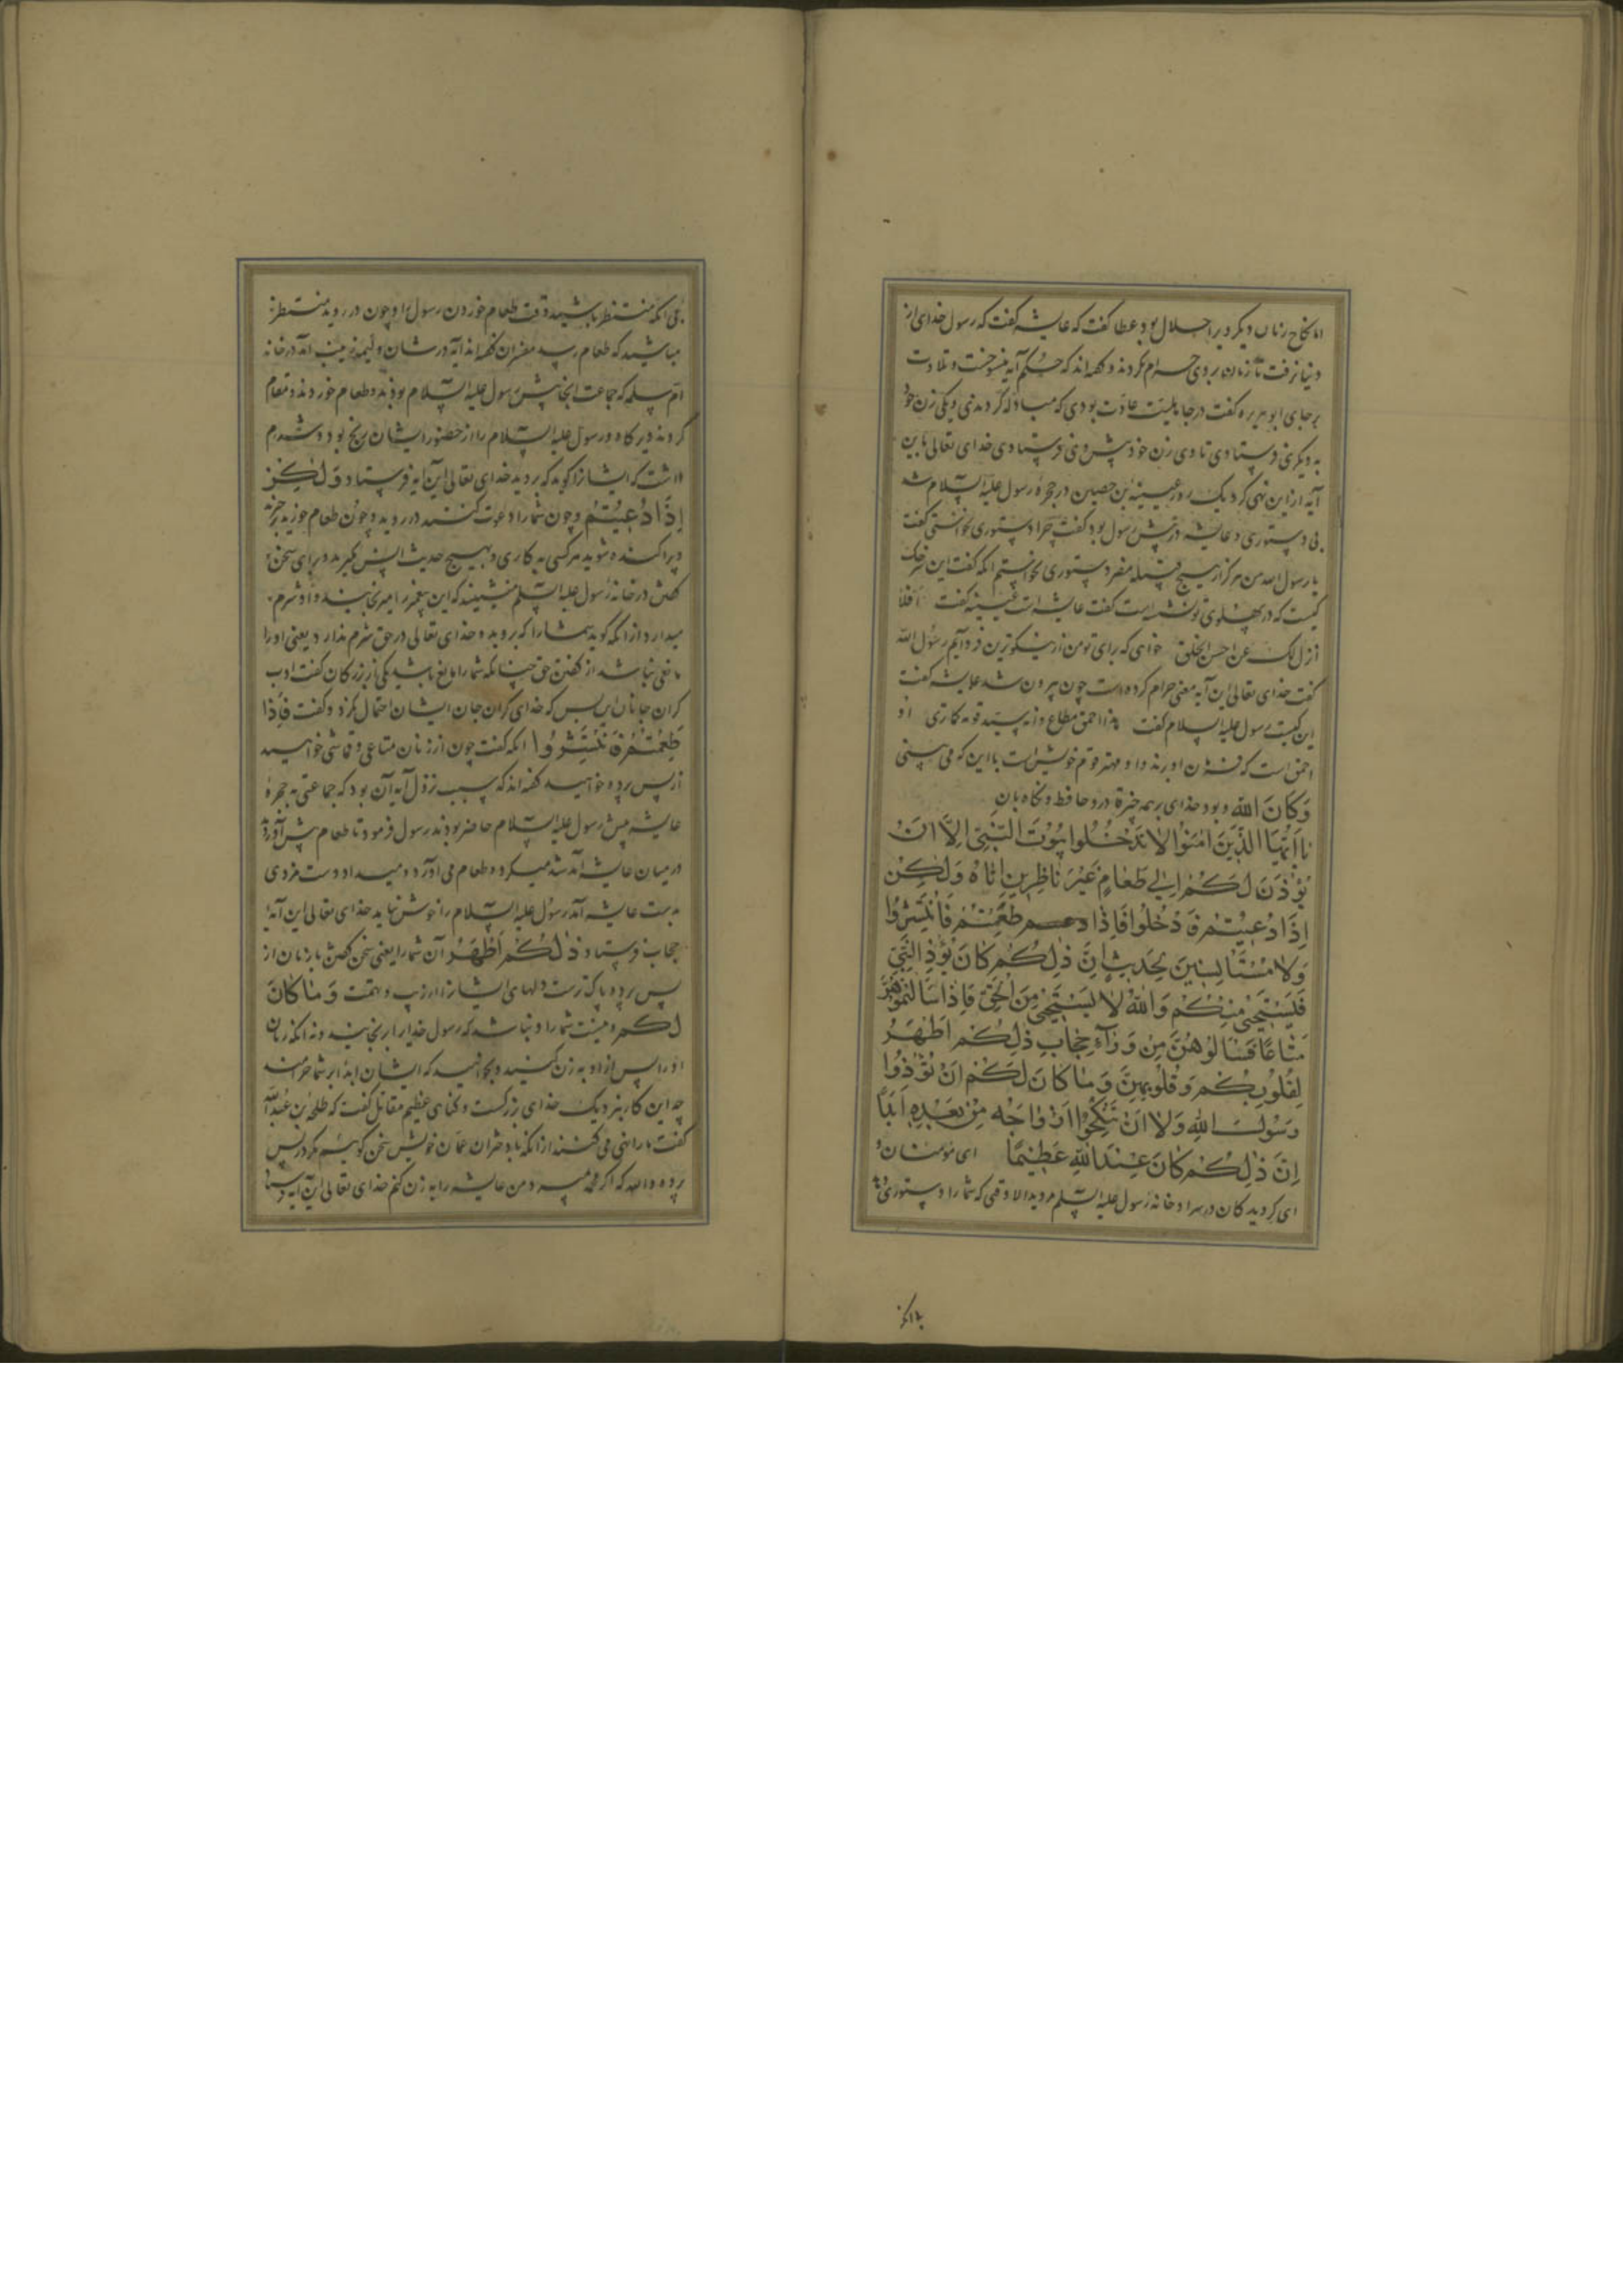 اما نکاح زنان دیگر ویرا حلال بود عطا گفت که عایشه گفت که رسول خدای از
دنیا نرفت تا زنان بر وی حرام کردند و گفته‌اند که حکم آیه منسوخست و تلاوت
بر جای ابو هریره گفت در جاهلیت عادت بودی که مبادله کردندی و یکی زن خود
به دیگری فرستادی تا وی زن خود پیش وی فرستادی خدای تعالی باین
آیه از این نهی کرد یک روز عیینه بن حصین در حجره رسول علیه السلام شد
بی دستوری و عایشه در پیش رسول بود گفت چرا دستوری نخواستی گفت
یا رسول الله من هرگز از هیچ قبیله مضر دستوری نخواستم انکه گفت این سرخک
کیست که در پهلوی تو نشسته است گفت عایشه است عیینه گفت افلا
انزل لک عن احسن الخلق خواهی که برای تو من از نیکوترین فرود آیم رسول الله
گفت خدای تعالی این آیه معنی حرام کرده است چون بیرون شد عایشه گفت
این کیست رسول علیه السلام گفت هذا احمق مطاع وانه سید قومه کاتری او
احمق است که فرمان او برند و او مهتر قوم خویش است با این که می بینی
وَكَانَ اللهُ و بود خدای بر همه چیزها در و حافظ و نگاه بان
يَا أَيُّهَا الَّذِينَ آمَنُوا لَا تَدْخُلُوا بُيُوتَ النَّبِيِّ إِلَّا أَنْ
يُؤْذَنَ لَكُمْ إِلَى طَعَامٍ غَيْرَ نَاظِرِينَ إِنَاهُ وَلَكِنْ
إِذَا دُعِيتُمْ فَادْخُلُوا فَإِذَا طَعِمْتُمْ فَانْتَشِرُوا
وَلَا مُسْتَأْنِسِينَ لِحَدِيثٍ إِنَّ ذَلِكُمْ كَانَ يُؤْذِي النَّبِيَّ
فَيَسْتَحْيِي مِنْكُمْ وَاللهُ لَا يَسْتَحْيِي مِنَ الْحَقِّ فَإِذَا سَأَلْتُمُوهُنَّ
مَتَاعًا فَسْأَلُوهُنَّ مِنْ وَرَاءِ حِجَابٍ ذَلِكُمْ أَطْهَرُ
لِقُلُوبِكُمْ وَقُلُوبِهِنَّ وَمَا كَانَ لَكُمْ أَنْ تُؤْذُوا
رَسُولَ اللهِ وَلَا أَنْ تَنْكِحُوا أَزْوَاجَهُ مِنْ بَعْدِهِ أَبَدًا
إِنَّ ذَلِكُمْ كَانَ عِنْدَ اللهِ عَظِيمًا ای مؤمنان و
ای گرویدگان در سرا و خانه رسول علیه السلام مروید الا وقتی که شما را دستوری دهند
بی آنکه منتظر باشید وقت طعام خوردن رسول را و چون در روید منتظر
مباشید که طعام رسد مفسران گفته‌اند آیه در شان ولیمه زینب آمد در خانه
ام سلمه که جماعت آنجا پیش رسول علیه السلام بودند و طعام خوردند و مقام
کردند دیرگاه و رسول علیه السلام را از حضور ایشان رنج بود و شرم
داشت که ایشانرا گوید که بروید خدای تعالی این آیه فرستاد وَلَكِنْ
إِذَا دُعِيتُمْ و چون شما را دعوت کنند در روید و چون طعام خورید برخیزید
و پراکنده شوید هر کسی به کاری و بهیچ حدیث انس مگیرید و برای سخن
گفتن در خانه رسول علیه السلم منشینید که این پیغمبر را میرنجانند و او شرم
میدارد از آنکه گوید شما را که بروید و خدای تعالی در حق شرم ندارد یعنی او را
مانعی نباشد از گفتن حق چنانکه شما را مانع باشد یکی از بزرگان گفت ادب
گران جانان این بس که خدای گران جان ایشان احتمال نکرد و گفت فَإِذَا
طَعِمْتُمْ فَانْتَشِرُوا آنکه گفت چون از زنان متاعی و قماشی خواهید
از پس پرده خواهید گفته‌اند که سبب نزول آیه آن بود که جماعتی به حجره
عایشه پیش رسول علیه السلام حاضر بودند رسول فرمود تا طعام پیش آوردند
در میان عایشه آمد شد میکرد و طعام می آورد و میداد دست مردی
بدست عایشه آمد رسول علیه السلام را خوش نیامد خدای تعالی این آیه
حجاب فرستاد ذَلِكُمْ أَطْهَرُ آن شما را یعنی سخن گفتن با زنان از
پس پرده پاکترست دلهای ایشانرا از ریب و تهمت وَمَا كَانَ
لَكُمْ و نیست شما را و نباشد که رسول خدایرا برنجانید و نه آنکه زنان
او را پس از او به زن کنید و بخواهید که ایشان ابدا بر شما حرامند
چه این کار بنزدیک خدای بزرگست و گناهی عظیم مقاتل گفت که طلحه بن عبدالله
گفت ما را نهی می کنند از آنکه با دختران عمان خویش سخن گوییم مگر در پس
پرده والله که اگر محمد بمیرد من عایشه را به زن کنم خدای تعالی این آیه فرستاد